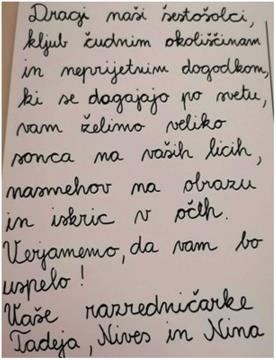 Dragi naši šestošolci,
kljub čudnim okoliščinam
in neprijetnim dogodkom,
ki se dogajajo po svetu,
vam želimo veliko
sonca na vaših licih,
nasmehov na obrazu
in iskric v očeh.
Verjamemo, da vam bo
uspelo!
Vaše razredničarke
Tadeja, Nives in Nina